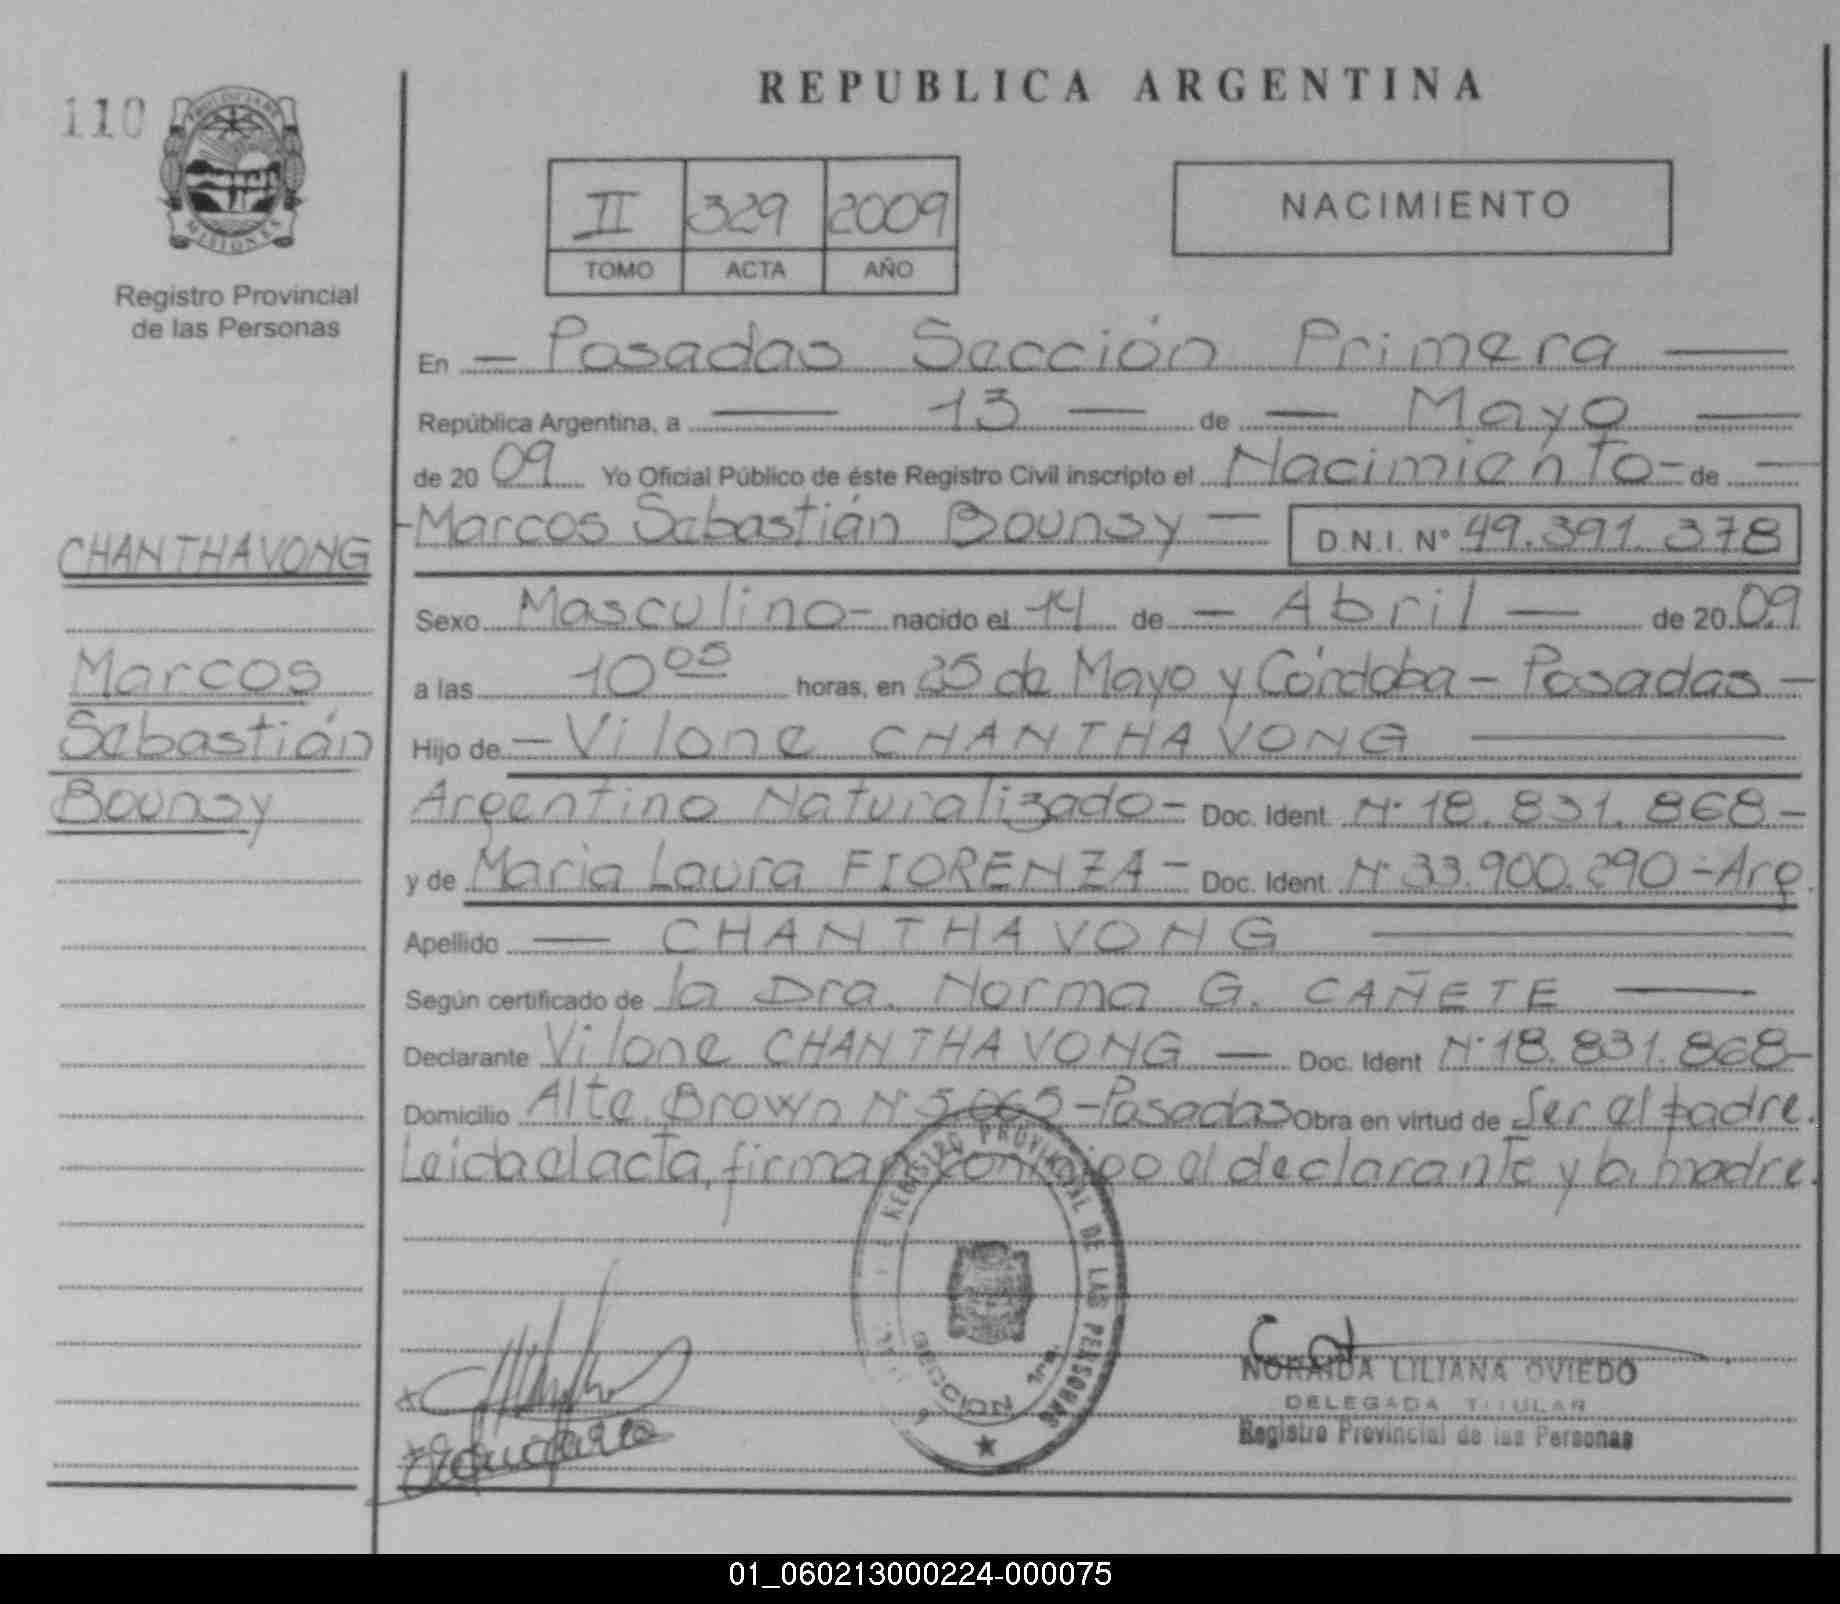 110
PROVINCIA DE
MISIONES
Registro Provincial
de las Personas
REPUBLICA ARGENTINA
II 329 2009
TOMO ACTA AÑO
NACIMIENTO
En — Posadas Sección Primera —
República Argentina, a — 13 — de — Mayo —
de 20 09 Yo Oficial Público de éste Registro Civil inscripto el Nacimiento - de —
- Marcos Sebastián Bounsy — D.N.I. N° 49.391.378
CHANTHAVONG
Marcos
Sebastián
Bounsy
Sexo Masculino - nacido el 14 de — Abril — de 20 09
a las 10 05 horas, en 25 de Mayo y Córdoba - Posadas -
Hijo de - Vilone CHANTHAVONG —
Argentino Naturalizado - Doc. Ident. N° 18.831.868 -
y de Maria Laura FIORENZA - Doc. Ident. N° 33.900.290 - Arg.
Apellido — CHANTHAVONG —
Según certificado de la Dra. Norma G. CAÑETE —
Declarante Vilone CHANTHAVONG — Doc. Ident N° 18.831.868 -
Domicilio Alte. Brown N° 5.065 - Posadas Obra en virtud de Ser el padre.
Leida el acta, firman conmigo el declarante y la madre.
REGISTRO PROVINCIAL DE LAS PERSONAS
SECCION 1ra.
NORAIDA LILIANA OVIEDO
DELEGADA TITULAR
Registro Provincial de las Personas
01_060213000224-000075